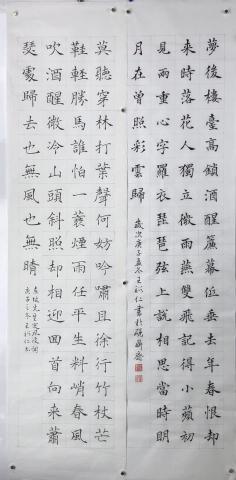 夢後樓臺高鎖酒醒簾幕低垂去年春恨却
來時落花人獨立微雨燕雙飛記得小蘋初
見兩重心字羅衣琵琶弦上說相思當時明
月在曾照彩雲歸
歲次庚子孟冬王仁書於硯耕齋
莫聽穿林打葉聲何妨吟嘯且徐行竹杖芒
鞋輕勝馬誰怕一蓑煙雨任平生料峭春風
吹酒醒微冷山頭斜照却相迎回首向來蕭
瑟處歸去也無風也無晴
東坡先生定風波詞
庚子之冬王仁書